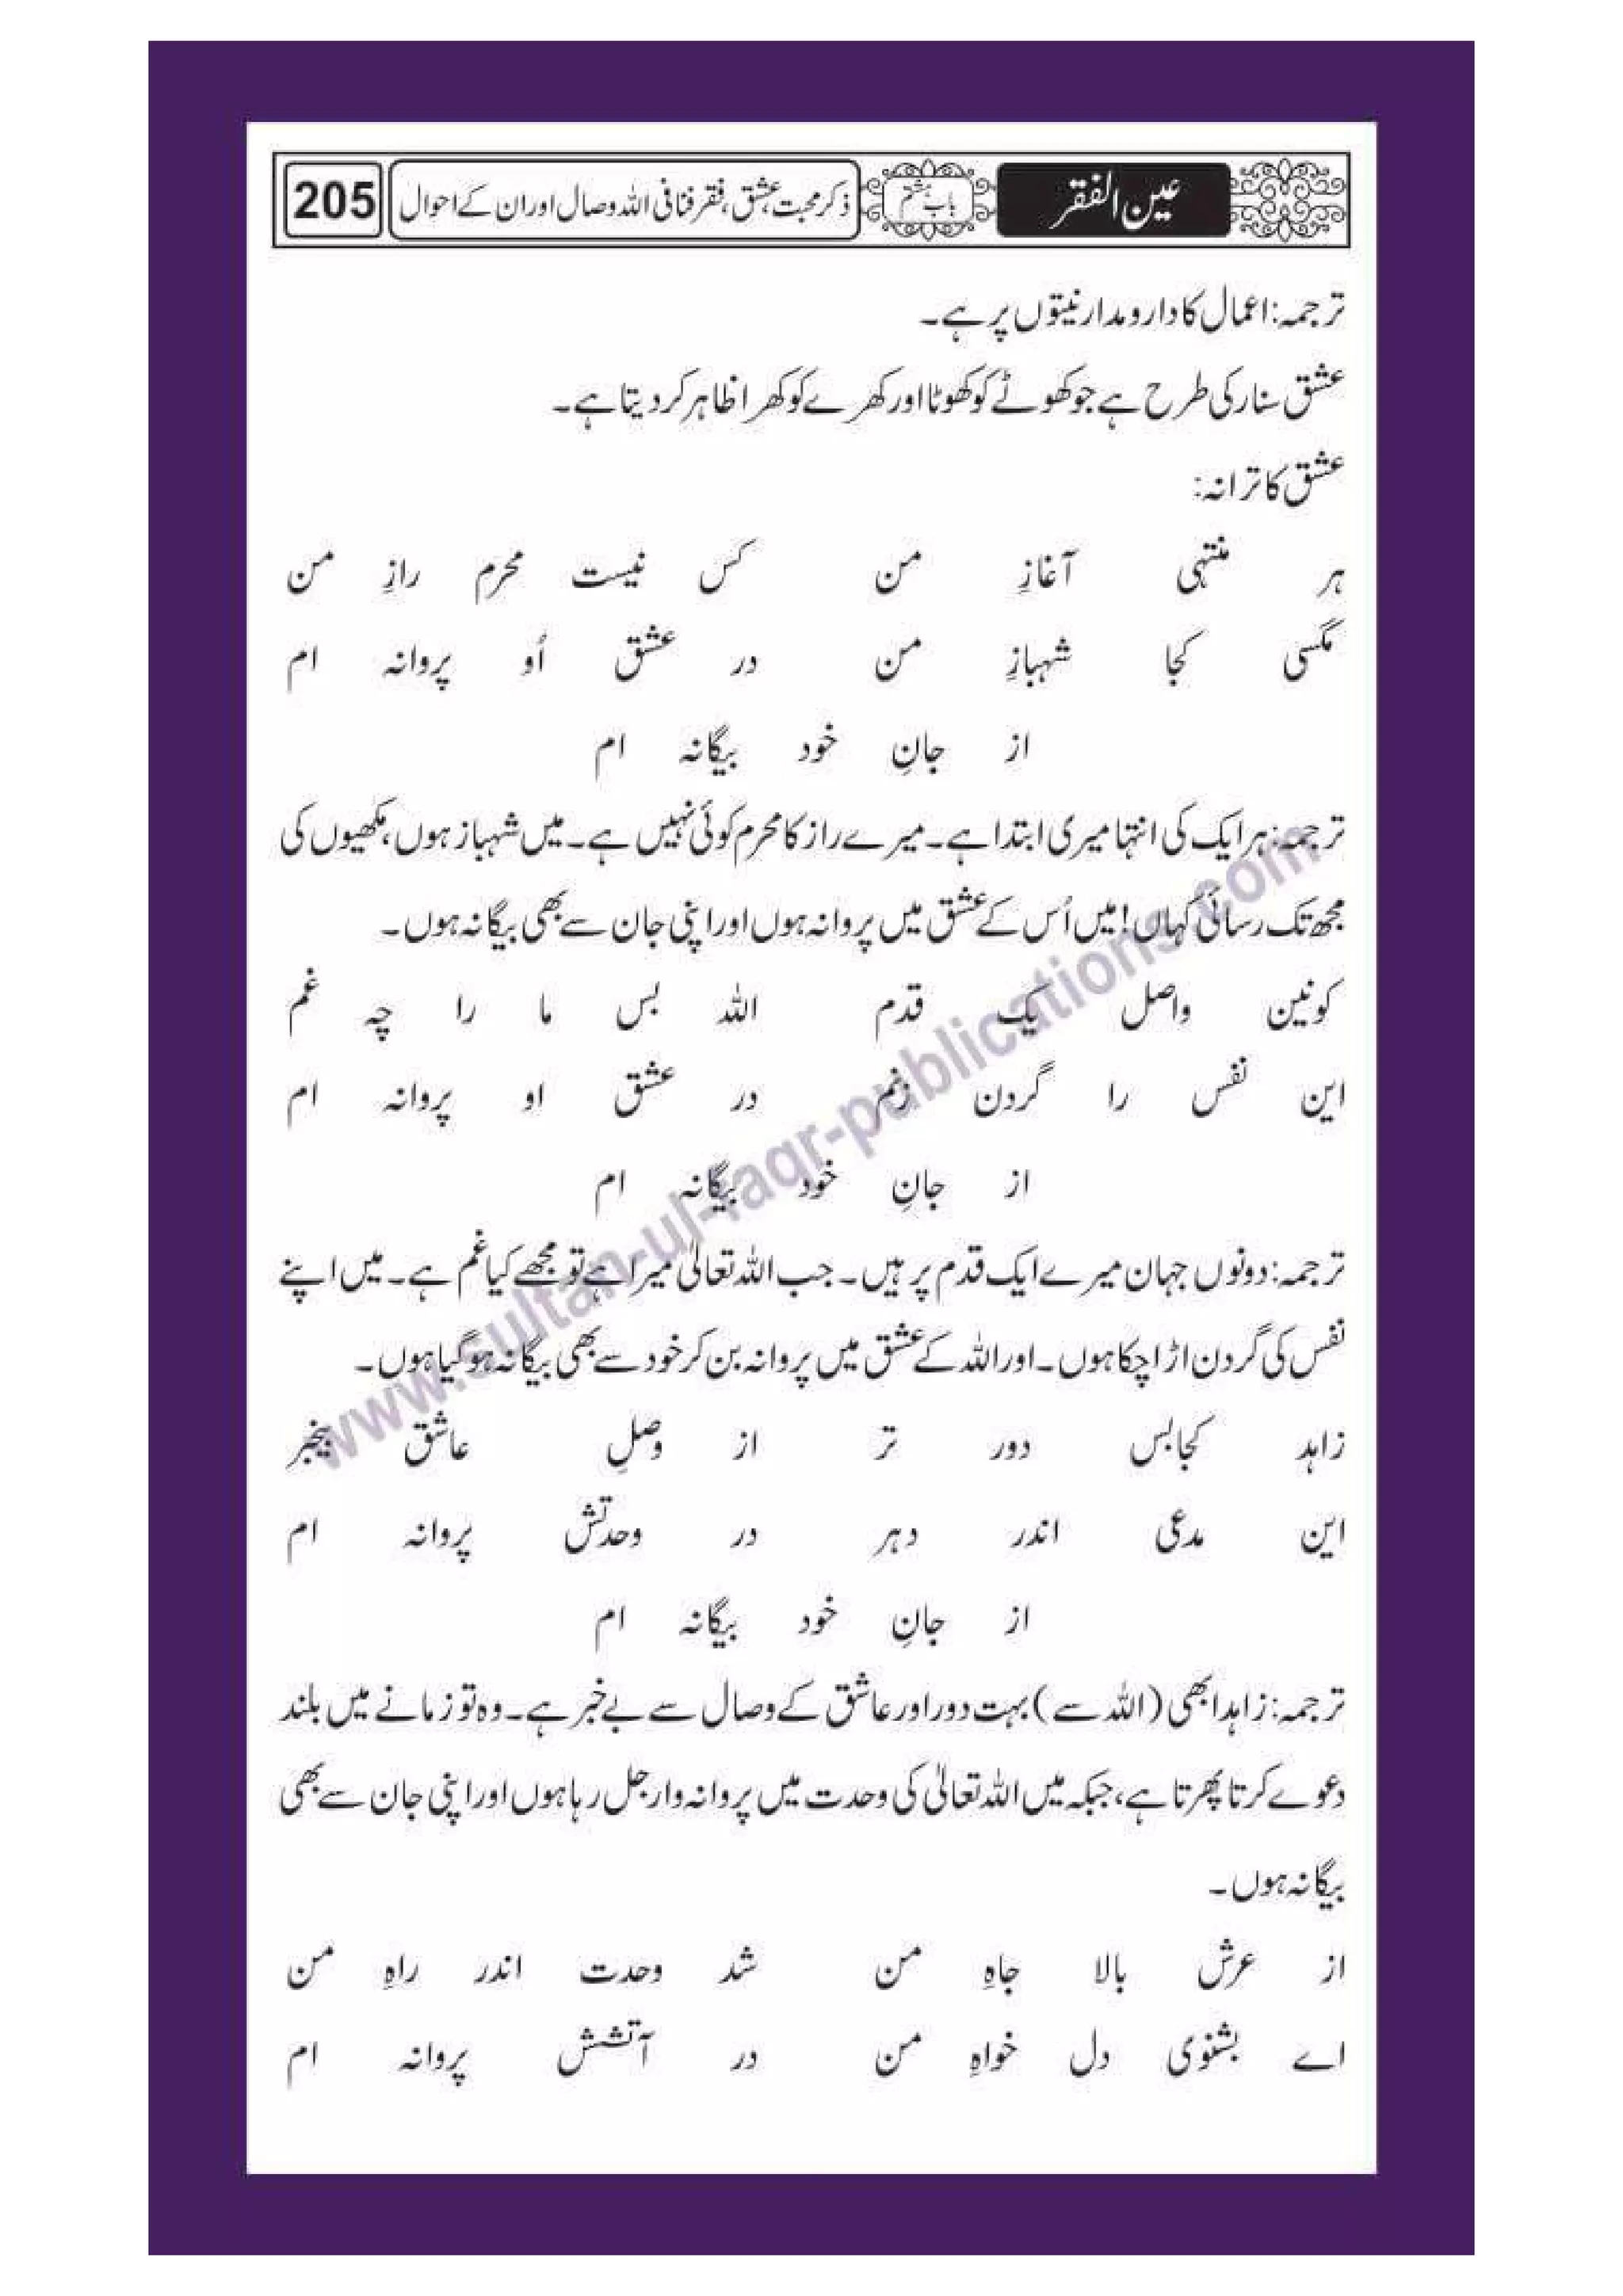 عین الفقر باب ہشتم ذکر محبت، عشق، فقر فنا فی اللہ وصال اور ان کے احوال 205
ترجمہ: اعمال کا دارومدار نیتوں پر ہے۔
عشق سنار کی طرح ہے جو کھوٹے کو کھوٹا اور کھرے کو کھرا ظاہر کر دیتا ہے۔
عشق کا ترانہ:
ہر منتہی آغازِ من کس نیست محرم رازِ من
مگسی کجا شہبازِ من در عشق اُو پروانہ ام
از جانِ خود بیگانہ ام
ترجمہ: ہر ایک کی انتہا میری ابتدا ہے۔ میرے راز کا محرم کوئی نہیں ہے۔ میں شہباز ہوں، مکھیوں کی
مجھ تک رسائی کہاں! میں اُس کے عشق میں پروانہ ہوں اور اپنی جان سے بھی بیگانہ ہوں۔
کونین واصل یک قدم اللہ بس ما را چہ غم
این نفس را گردن زنم در عشق او پروانہ ام
از جانِ خود بیگانہ ام
ترجمہ: دونوں جہان میرے ایک قدم پر ہیں۔ جب اللہ تعالیٰ میرا ہے تو مجھے کیا غم ہے۔ میں اپنے
نفس کی گردن اڑا چکا ہوں۔ اور اللہ کے عشق میں پروانہ بن کر خود سے بھی بیگانہ ہو گیا ہوں۔
زاہد کجا بس دور تر از وصلِ عاشق بیخبر
این مدعی اندر دہر در وحدتش پروانہ ام
از جانِ خود بیگانہ ام
ترجمہ: زاہد ابھی (اللہ سے) بہت دور اور عاشق کے وصال سے بے خبر ہے۔ وہ تو زمانے میں بلند
دعوے کرتا پھرتا ہے، جبکہ میں اللہ تعالیٰ کی وحدت میں پروانہ وار جل رہا ہوں اور اپنی جان سے بھی
بیگانہ ہوں۔
از عرش بالا جاہِ من شد وحدت اندر راہِ من
اے بشنوی دل خواہِ من در آتشش پروانہ ام
www.sultan-ul-faqr-publications.com